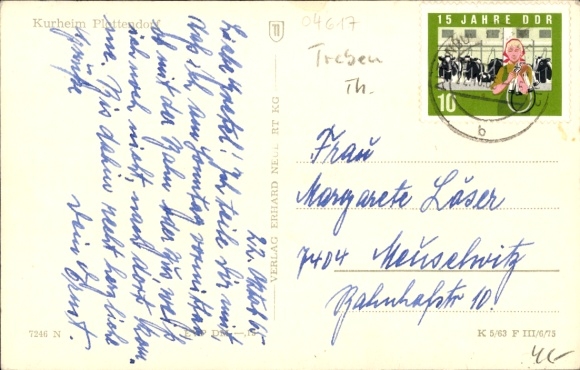 Kurheim Plottendorf
04617
Treben
Th.
15 JAHRE DDR
10
b
22. Oktob. 65
Liebe Gretel! Ich teile Dir mit
daß ich am Sonntag vormittag
mit der Bahn oder
ich noch nicht, nach dort kom-
me. Bis dahin recht herzliche
Grüße
Dein Ernst.
VERLAG ERHARD NEUBERT KG
Frau
Margarete Läser
7404 Meuselwitz
Bahnhofstr 10.
7246 N
K 5/63 F III/6/75